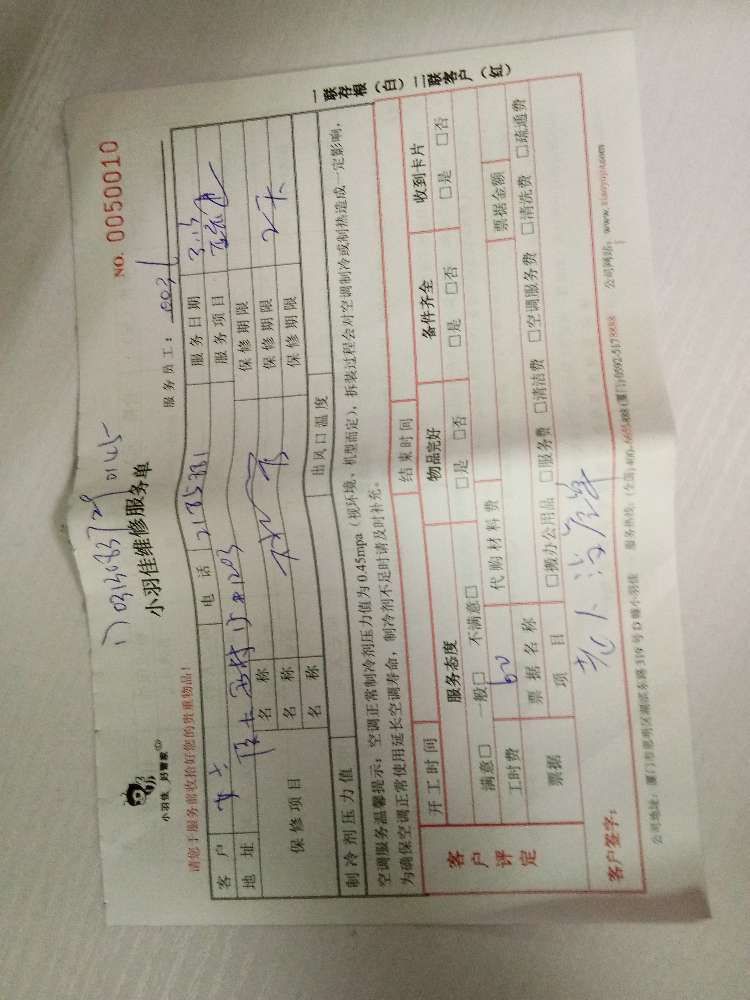 NO. 0050010
0145
小羽佳维修服务单
小羽佳 好管家
服务员工：0036
请您于服务前收拾好您的贵重物品！
客户 女士 电话 服务日期 3.15
地址 服务项目
保修项目 名称 保修期限
名称 保修期限
名称 保修期限
制冷剂压力值 出风口温度
空调服务温馨提示：空调正常制冷剂压力值为0.45mpa（视环境、机型而定），拆装过程会对空调制冷或制热造成一定影响，
为确保空调正常使用延长空调寿命，制冷剂不足时请及时补充。
客户评定 开工时间 结束时间
服务态度 物品完好 备件齐全 收到卡片
满意□ 一般□ 不满意□ □是 □否 □是 □否 □是 □否
工时费 60 代购材料费
票据 票据名称 票据金额
项目 □搬办公用品 □服务费 □清洁费 □空调服务费 □清洗费 □疏通费
客户签字：
公司地址：厦门市思明区湖滨东路319号D幢小羽佳 服务热线：(全国)400-6605-888 (厦门)0592-5178888 公司网站：www.xiaoyujia.com
一联存根（白）二联客户（红）